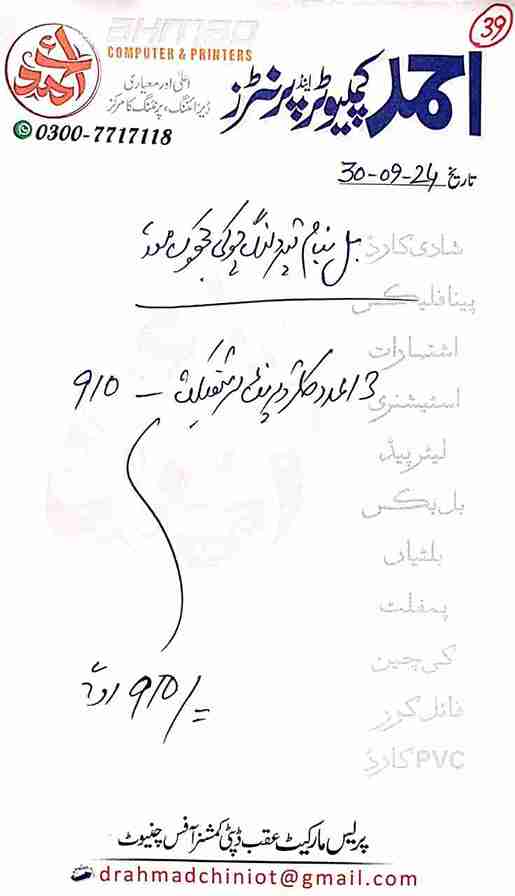 39
AHMAD
COMPUTER & PRINTERS
احمد کمپیوٹر اینڈ پرنٹرز
اعلیٰ اور معیاری
ڈیزائننگ، پرنٹنگ کا مرکز
0300-7717118
تاریخ 30-09-24
بل بنام
شادی کارڈ
پینا فلیکس
اشتہارات
13 عدد کلرڈ پرنٹ سرٹیفکیٹ — 910
اسٹیشنری
لیٹر پیڈ
بل بکس
بلٹیاں
پمفلٹ
کی چین
910/=
فائل کورز
PVC کارڈ
پریس مارکیٹ عقب ڈپٹی کمشنر آفس چنیوٹ
drahmadchiniot@gmail.com